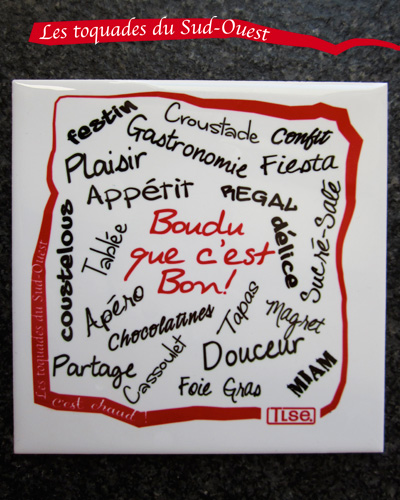 Les toquades du Sud-Ouest
festin
Croustade
Confit
Gastronomie
Plaisir
Fiesta
Appétit
REGAL
Sucré-Salé
coustelous
Tablée
Boudu
que c'est
Bon!
délice
Apéro
Chocolatines
Tapas
Magret
Partage
Cassoulet
Douceur
Foie Gras
MIAM
Les toquades du Sud-Ouest
c'est chaud!
TLSE.